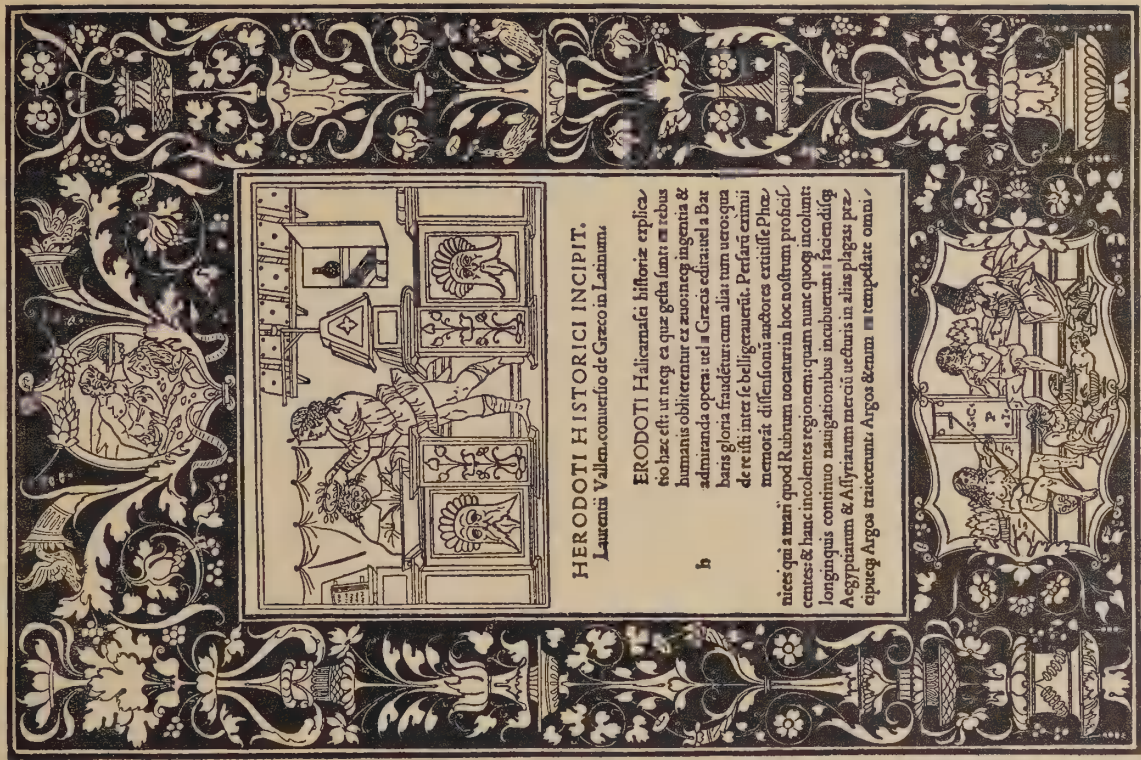 HERODOTI HISTORICI INCIPIT.
Laurentii Vallen. conuersio de Græco in Latinum.
h
ERODOTI Halicarnasei historiæ explica/
tio hæc est: ut neq; ea quæ gesta sunt: rebus
humanis obliterentur ex æuo: neq; ingentia &
admiranda opera: uel Græcis edita: uel a Bar
baris gloria fraudētur: cum alia: tum uero: qua
de re isti inter se belligerauerūt. Persarū eximii
memorāt dissensionū auctores extitisse Phœ/
nices qui a mari quod Rubrum uocatur in hoc nostrum proficis/
centes: & hanc incolentes regionem: quam nunc quoq; incolunt:
longinquis continuo nauigationibus incubuerunt: faciendisq;
Aegyptiarum & Assyriarum merciū uecturis in alias plagas: præ/
cipueq; Argos traiecerunt: Argos &enim tempestate omni/
S.C.
P